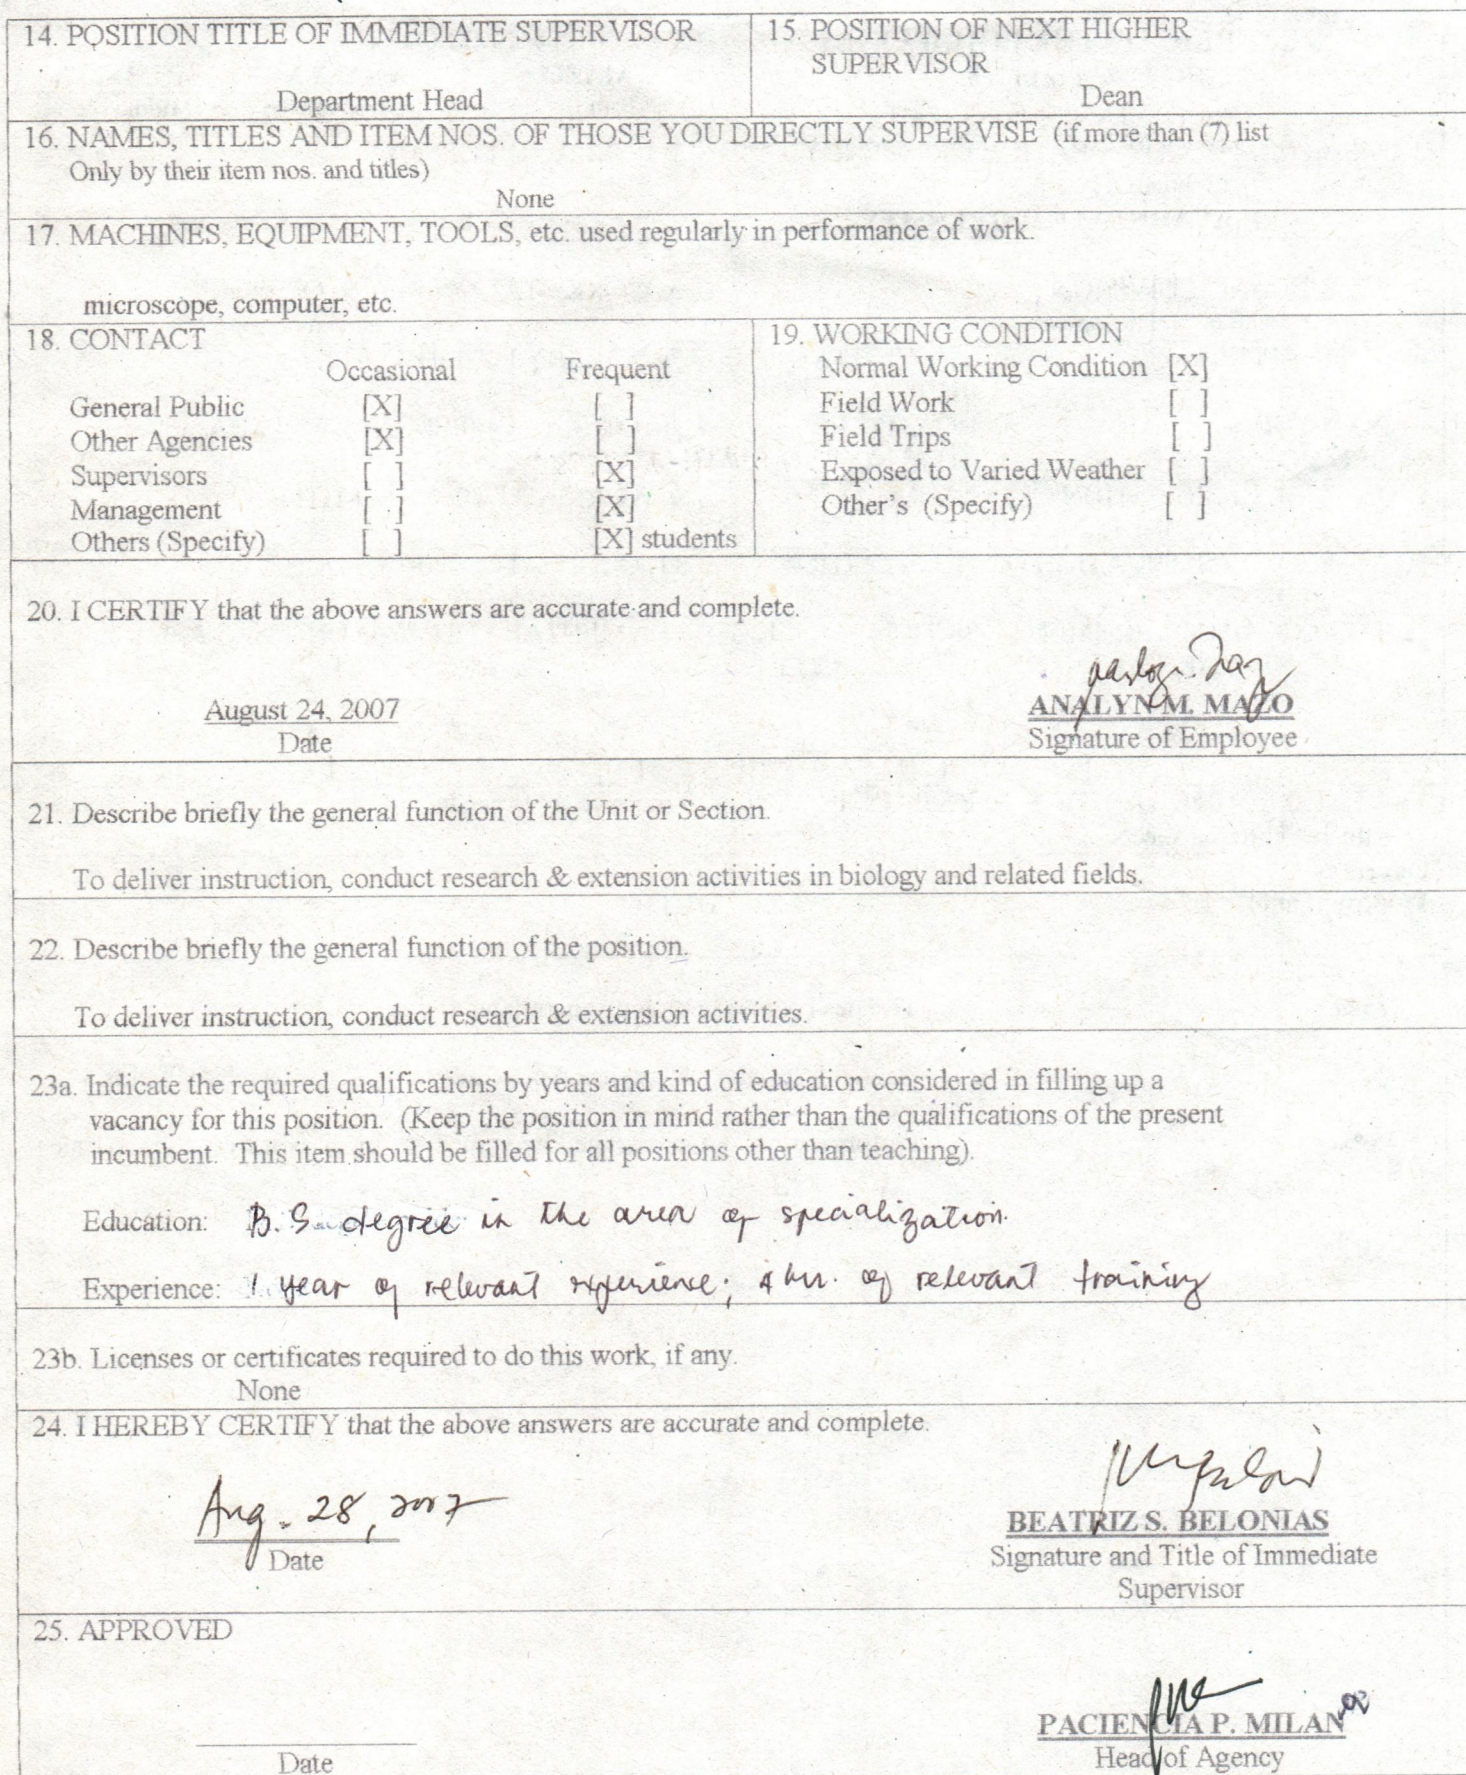 14. POSITION TITLE OF IMMEDIATE SUPERVISOR
Department Head
15. POSITION OF NEXT HIGHER
SUPERVISOR
Dean
16. NAMES, TITLES AND ITEM NOS. OF THOSE YOU DIRECTLY SUPERVISE (if more than (7) list
Only by their item nos. and titles)
None
17. MACHINES, EQUIPMENT, TOOLS, etc. used regularly in performance of work.
microscope, computer, etc.
18. CONTACT
Occasional Frequent
General Public [X] [ ]
Other Agencies [X] [ ]
Supervisors [ ] [X]
Management [ ] [X]
Others (Specify) [ ] [X] students
19. WORKING CONDITION
Normal Working Condition [X]
Field Work [ ]
Field Trips [ ]
Exposed to Varied Weather [ ]
Other's (Specify) [ ]
20. I CERTIFY that the above answers are accurate and complete.
August 24, 2007
Date
ANALYN M. MAZO
Signature of Employee
21. Describe briefly the general function of the Unit or Section.
To deliver instruction, conduct research & extension activities in biology and related fields.
22. Describe briefly the general function of the position.
To deliver instruction, conduct research & extension activities.
23a. Indicate the required qualifications by years and kind of education considered in filling up a
vacancy for this position. (Keep the position in mind rather than the qualifications of the present
incumbent. This item should be filled for all positions other than teaching).
Education: B.S. degree in the area of specialization.
Experience: 1 year of relevant experience; 4 hr. of relevant training
23b. Licenses or certificates required to do this work, if any.
None
24. I HEREBY CERTIFY that the above answers are accurate and complete.
Aug. 28, 2007
Date
BEATRIZ S. BELONIAS
Signature and Title of Immediate
Supervisor
25. APPROVED
Date
PACIENCIA P. MILAN
Head of Agency